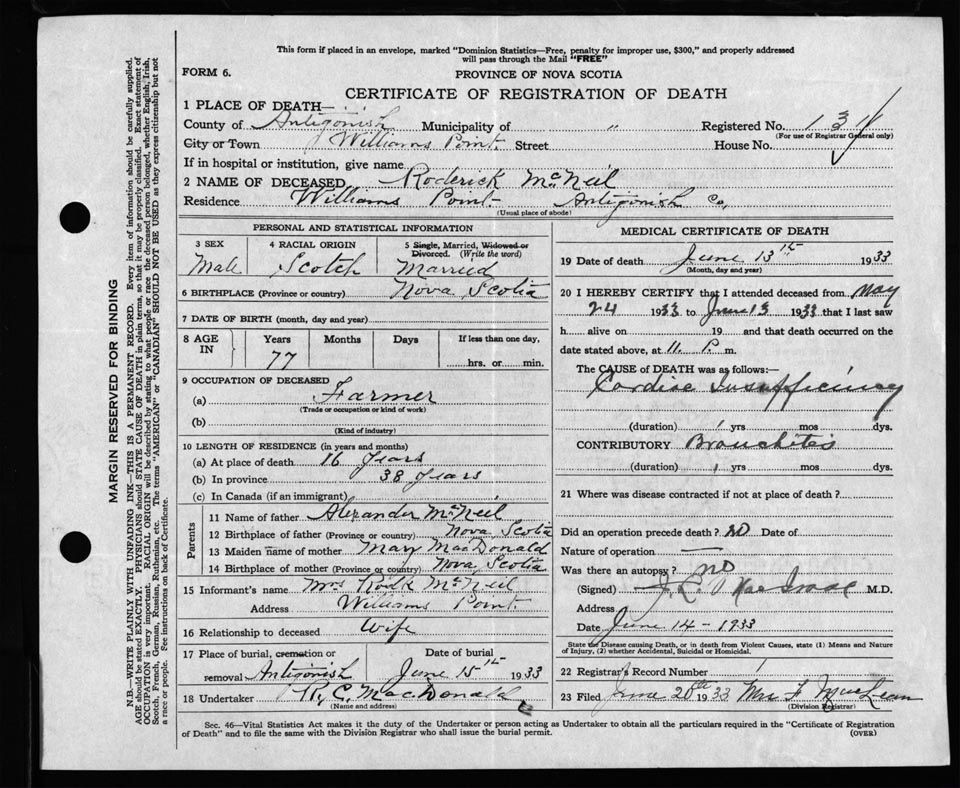 This form if placed in an envelope, marked "Dominion Statistics—Free, penalty for improper use, $300," and properly addressed
will pass through the Mail "FREE"
FORM 6.
PROVINCE OF NOVA SCOTIA
CERTIFICATE OF REGISTRATION OF DEATH
1 PLACE OF DEATH—
County of Antigonish Municipality of " Registered No. 13
(For use of Registrar General only)
City or Town Williams Point Street House No.
If in hospital or institution, give name
2 NAME OF DECEASED Roderick McNeil
Residence Williams Point Antigonish Co,
(Usual place of abode)
PERSONAL AND STATISTICAL INFORMATION
3 SEX 4 RACIAL ORIGIN 5 Single, Married, Widowed or
Divorced. (Write the word)
Male Scotch Married
6 BIRTHPLACE (Province or country) Nova Scotia
7 DATE OF BIRTH (month, day and year)
8 AGE IN Years Months Days If less than one day,
77 hrs. or min.
9 OCCUPATION OF DECEASED
(a) Farmer
(Trade or occupation or kind of work)
(b)
(Kind of industry)
10 LENGTH OF RESIDENCE (in years and months)
(a) At place of death 16 years
(b) In province 38 years
(c) In Canada (if an immigrant)
Parents
11 Name of father Alexander McNeil
12 Birthplace of father (Province or country) Nova Scotia
13 Maiden name of mother Mary MacDonald
14 Birthplace of mother (Province or country) Nova Scotia
15 Informant's name Mrs Rodk McNeil
Address Williams Point
16 Relationship to deceased Wife
17 Place of burial, cremation or removal Date of burial
Antigonish June 15th 1933
18 Undertaker R, C, MacDonald
(Name and address)
MEDICAL CERTIFICATE OF DEATH
19 Date of death June 13th 1933
(Month, day and year)
20 I HEREBY CERTIFY that I attended deceased from May
24 1933 to June 13 1933 that I last saw
h alive on 19 and that death occurred on
date stated above, at 11. P. m.
The CAUSE of DEATH was as follows:—
Cardiac Insufficiency
(duration) 1 yrs mos dys.
CONTRIBUTORY Bronchitis
(duration) 1 yrs mos dys.
21 Where was disease contracted if not at place of death?
Did an operation precede death? no Date of
Nature of operation —
Was there an autopsy? no
(Signed) J. L. MacIsaac M.D.
Address
Date June 14 - 1933
State the Disease causing Death, or in death from Violent Causes, state (1) Means and Nature
of Injury, (2) whether Accidental, Suicidal or Homicidal.
22 Registrar's Record Number 1
23 Filed June 28th 1933 Mrs F. MacLean
(Division Registrar)
Sec. 46—Vital Statistics Act makes it the duty of the Undertaker or person acting as Undertaker to obtain all the particulars required in the "Certificate of Registration
of Death" and to file the same with the Division Registrar who shall issue the burial permit.
(OVER)
MARGIN RESERVED FOR BINDING
N.B.—WRITE PLAINLY WITH UNFADING INK—THIS IS A PERMANENT RECORD. Every item of information should be carefully supplied.
AGE should be stated EXACTLY. PHYSICIANS should STATE CAUSE OF DEATH in plain terms, so that it may be properly classified. Exact statement of
OCCUPATION is very important. RACIAL ORIGIN will be described by stating to what people or race the deceased person belonged, whether English, Irish,
Scotch, French, German, Russian, Ruthenian, etc. The terms "AMERICAN" or "CANADIAN" SHOULD NOT BE USED as they express citizenship but not
a race or people. Fee instructions on back of Certificate.